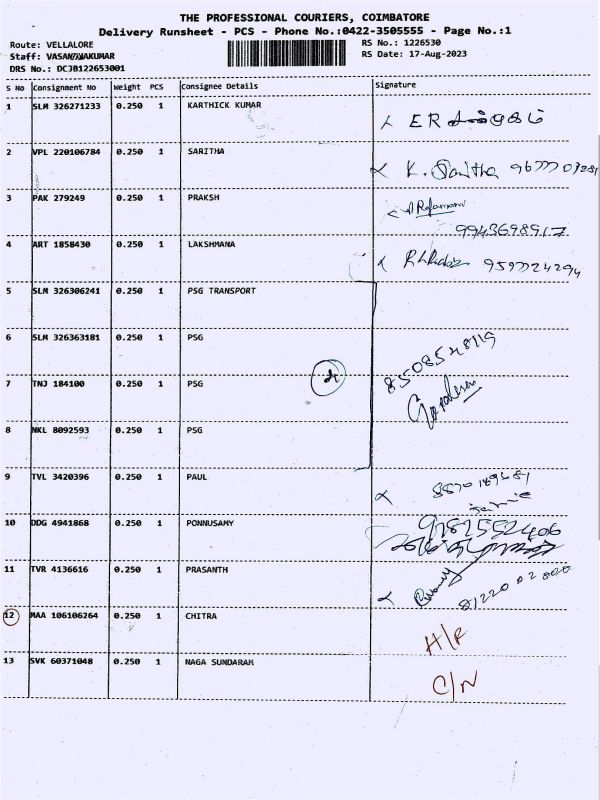 THE PROFESSIONAL COURIERS, COIMBATORE
Delivery Runsheet - PCS - Phone No.:0422-3505555 - Page No.:1
Route: VELLALORE
RS No.: 1226530
Staff: VASANTHAKUMAR
RS Date: 17-Aug-2023
DRS No.: DCJB122653001
S No Consignment No Weight PCS Consignee Details Signature
1 SLM 326271233 0.250 1 KARTHICK KUMAR
2 VPL 220106784 0.250 1 SARITHA K. Saritha
3 PAK 279249 0.250 1 PRAKSH
9943698917
4 ART 1858430 0.250 1 LAKSHMANA
5 SLM 326306241 0.250 1 PSG TRANSPORT
6 SLM 326363181 0.250 1 PSG
8508548119
7 TNJ 184100 0.250 1 PSG 4
8 NKL 8092593 0.250 1 PSG
9 TVL 3420396 0.250 1 PAUL
10 DDG 4941868 0.250 1 PONNUSAMY
11 TVR 4136616 0.250 1 PRASANTH
81220 02 000
12 MAA 106106264 0.250 1 CHITRA
H/R
13 SVK 60371048 0.250 1 NAGA SUNDARAM
C/N